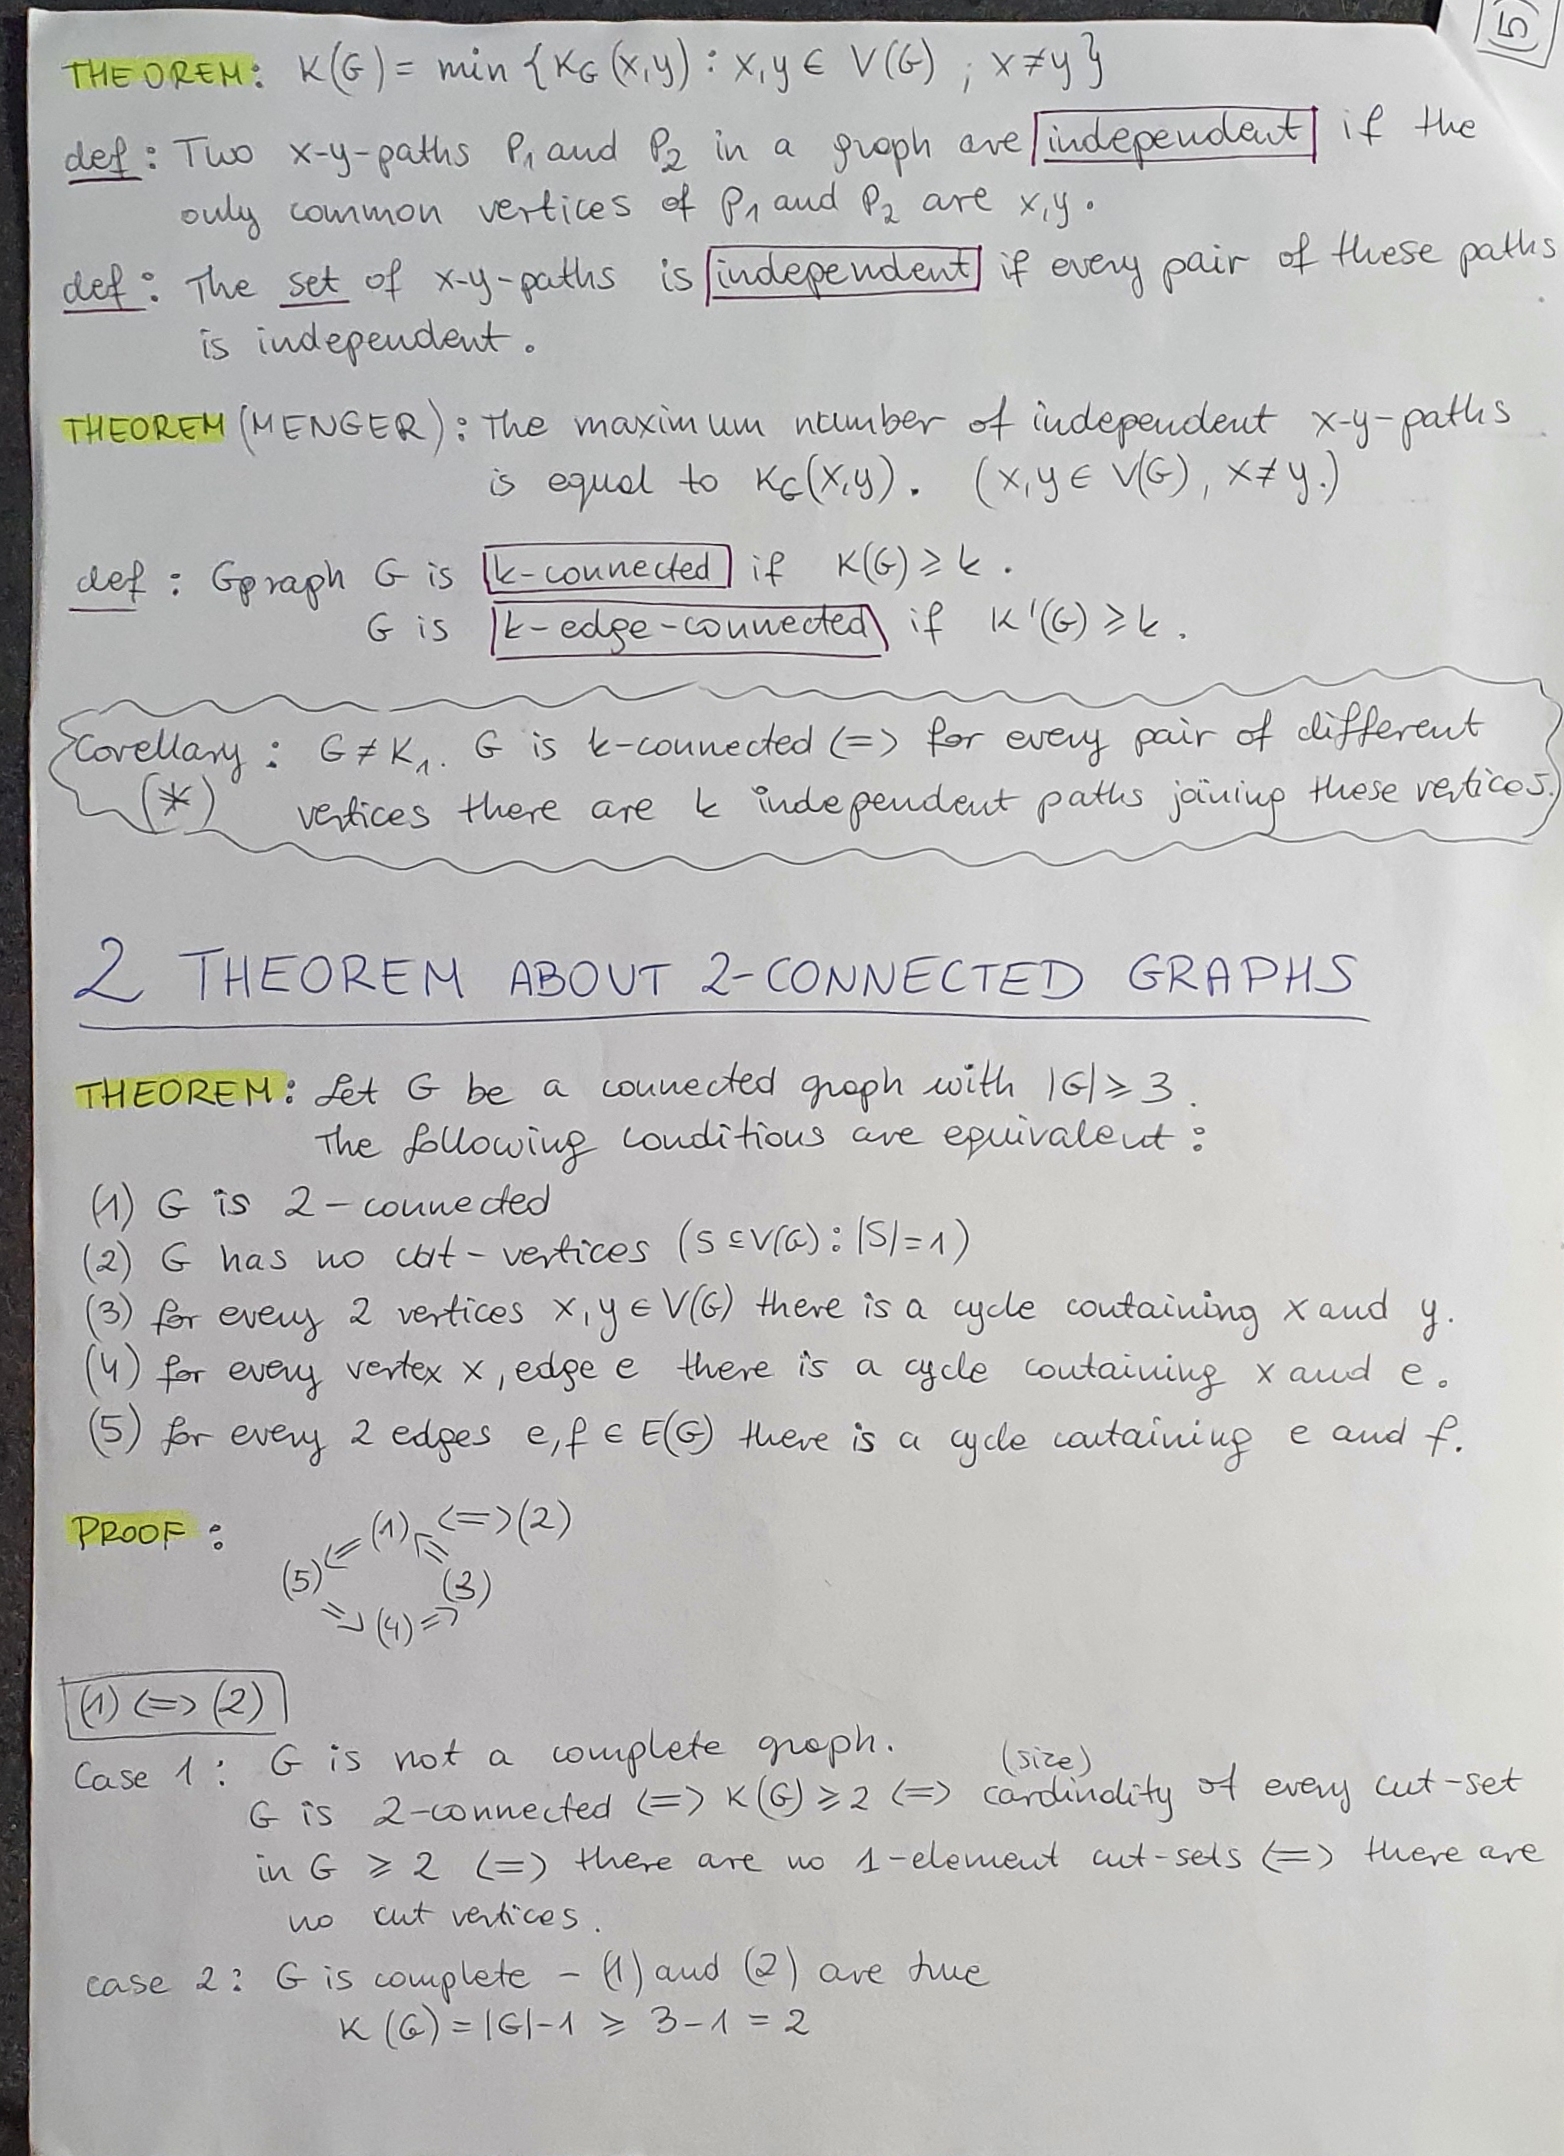 (5)
THEOREM: K(G) = min {K_G (x,y) : x,y ∈ V(G) ; x≠y}
def: Two x-y-paths P₁ and P₂ in a graph are independent if the
only common vertices of P₁ and P₂ are x,y.
def: The set of x-y-paths is independent if every pair of these paths
is independent.
THEOREM (MENGER): The maximum number of independent x-y-paths
is equal to K_G(x,y). (x,y ∈ V(G), x≠y.)
def: Gpraph G is k-connected if K(G) ≥ k.
G is k-edge-connected if K'(G) ≥ k.
Corellary: G ≠ K₁. G is k-connected (=) for every pair of different
(*) vertices there are k independent paths joining these vertices.
2 THEOREM ABOUT 2-CONNECTED GRAPHS
THEOREM: Let G be a connected graph with |G| ≥ 3.
The following conditions are equivalent:
(1) G is 2-connected
(2) G has no cut-vertices (S ⊆ V(G) : |S|=1)
(3) for every 2 vertices x,y ∈ V(G) there is a cycle containing x and y.
(4) for every vertex x, edge e there is a cycle containing x and e.
(5) for every 2 edges e,f ∈ E(G) there is a cycle containing e and f.
PROOF: (1) <=> (2)
(5) (3)
=> (4) =>
(1) <=> (2)
Case 1: G is not a complete graph.
(size)
G is 2-connected <=> K(G) ≥ 2 <=> cardinality of every cut-set
in G ≥ 2 <=> there are no 1-element cut-sets <=> there are
no cut vertices.
case 2: G is complete - (1) and (2) are true
K(G) = |G|-1 ≥ 3-1 = 2